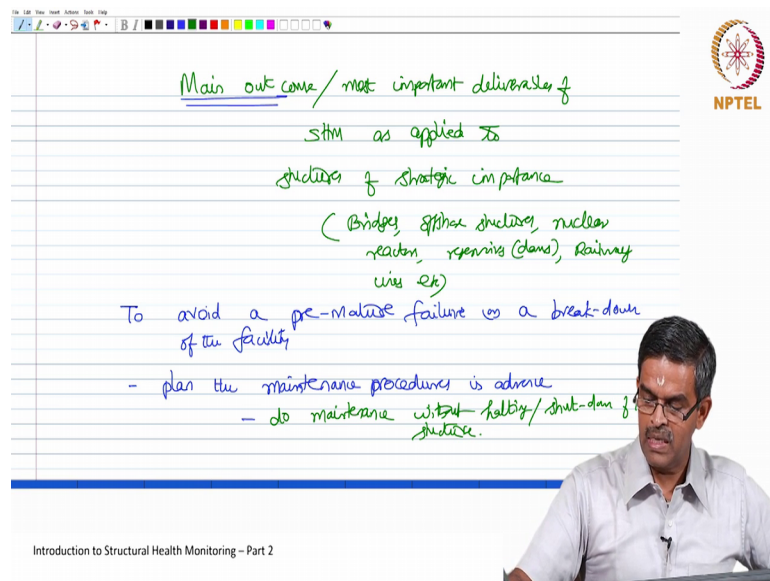 File Edit View Insert Actions Tools Help
B I
NPTEL
Main out come/most important deliverables of
SHM as applied to
structures of strategic importance
(Bridges, offshore structures, nuclear
reactors, reservoirs (dams), Railway
lines etc)
To avoid a pre-mature failure or a break-down
of the facility
- plan the maintenance procedures is advance
- do maintenance without halting/shut-down of
structure.
Introduction to Structural Health Monitoring – Part 2